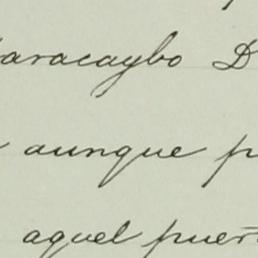 aracaybo D
aunque p
aquel puert